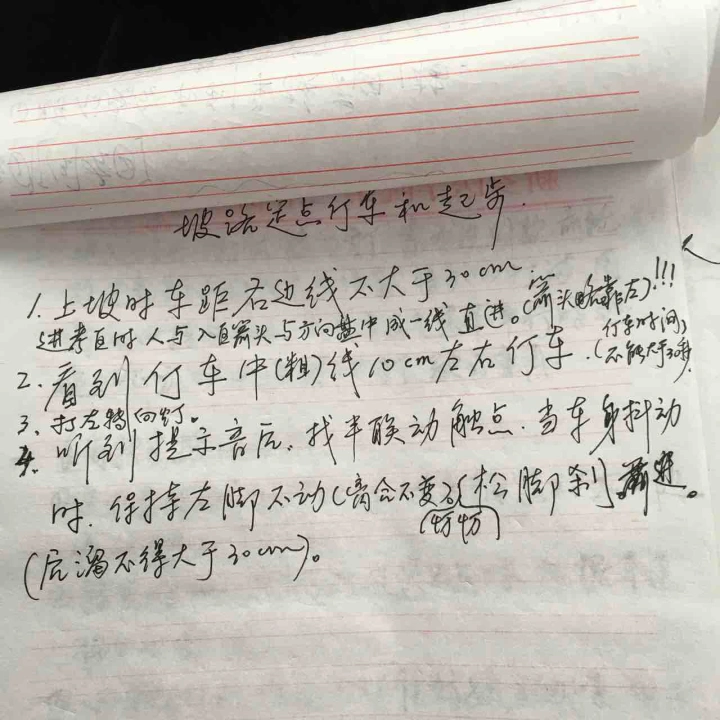 坡路定点行车和起步.
1.上坡时车距右边线不大于30cm.
进考区时人与入区箭头与方向盘中成一线直进。(箭头略靠左)!!!
2.看到行车中(粗)线10cm左右停车.(停车时间,
不能大于30秒.
3、打左转向灯。
4.听到提示音后.找半联动触点.当车身抖动
时.保持左脚不动(离合不变)(松脚刹)前进。
(后溜不得大于30cm)。